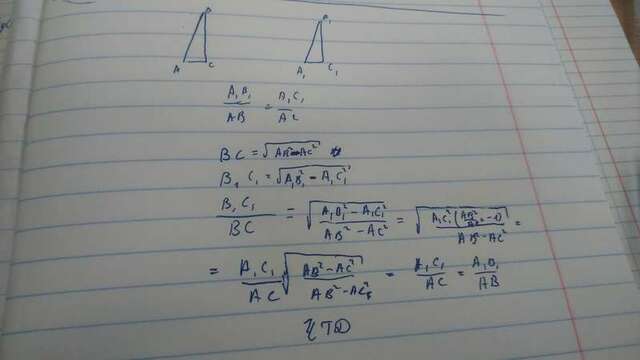 B B₁
A C A₁ C₁
A₁B₁/AB = A₁C₁/AC
BC = √(AB² - AC²)
B₁C₁ = √(A₁B₁² - A₁C₁²)
B₁C₁/BC = √((A₁B₁² - A₁C₁²)/(AB² - AC²)) = √((A₁C₁²(AB²/AC² - 1))/(AB² - AC²)) =
= A₁C₁/AC √((AB² - AC²)/(AB² - AC²)) = A₁C₁/AC = A₁B₁/AB
ЧТД